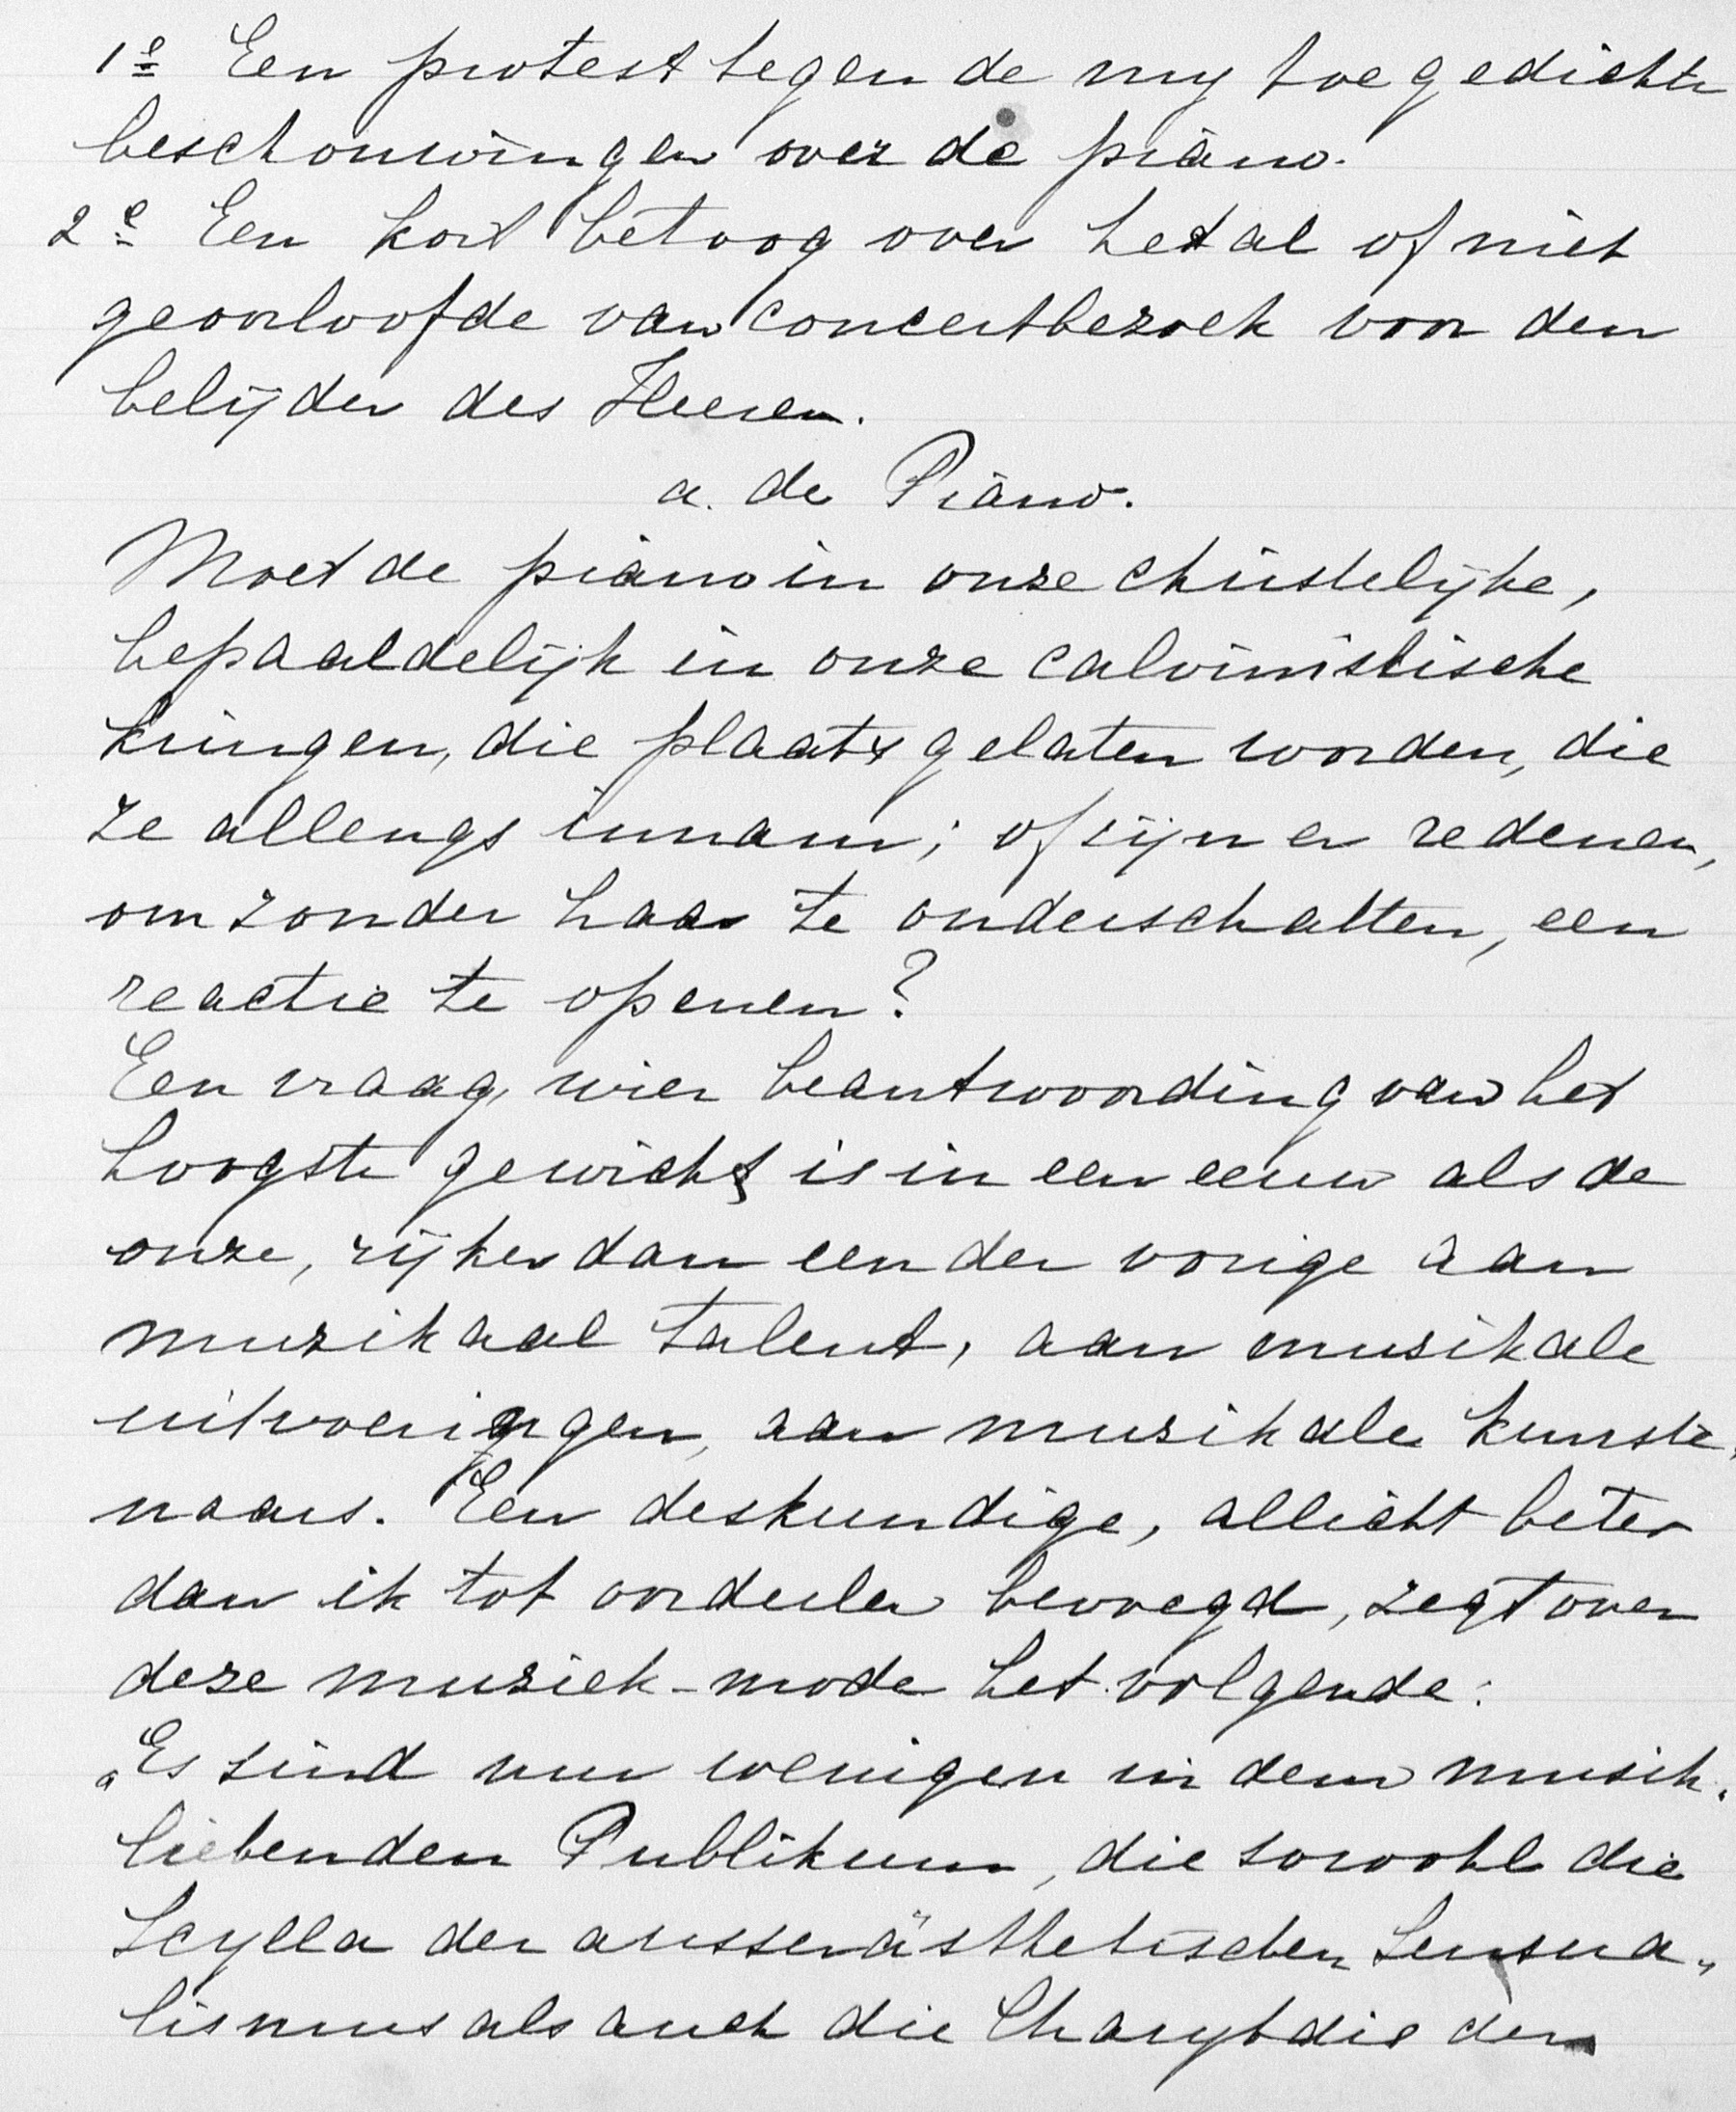 1e Een protest tegen de my toegedichte
beschouwingen over de piano.
2e Een kort betoog over het al of niet
geoorloofde van concertbezoek voor den
belijder des Heeren.
a. de Piano.
Moet de piano in onze christelijke,
bepaaldelijk in onze calvinistische
kringen, die plaats gelaten worden, die
ze allengs innam; of zijn er redenen,
om zonder haar te onderschatten, een
reactie te openen?
Een vraag, wier beantwoording van het
hoogste gewicht is in een eeuw als de
onze, rijker dan een der vorige aan
muzikaal talent, aan musikale
uitvoeringen, aan muzikale kunste,
naars. Een deskundige, allicht beter
dan ik tot oordeelen bevoegd, zegt over
deze muziek-mode het volgende:
„Es sind nur wenigen in dem musik.
liebenden Publikum, die sowohl die
Scylla der ausserästhetischen Sensua„
lismus als auch die Charybdis der